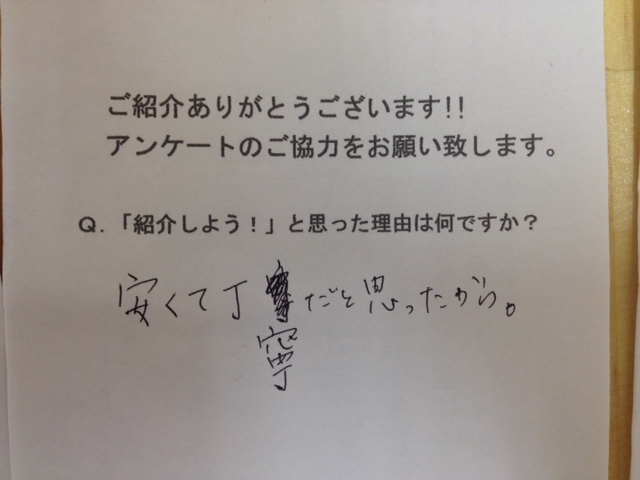 ご紹介ありがとうございます!!
アンケートのご協力をお願い致します。
Q．「紹介しよう！」と思った理由は何ですか？
安くて丁寧だと思ったから。